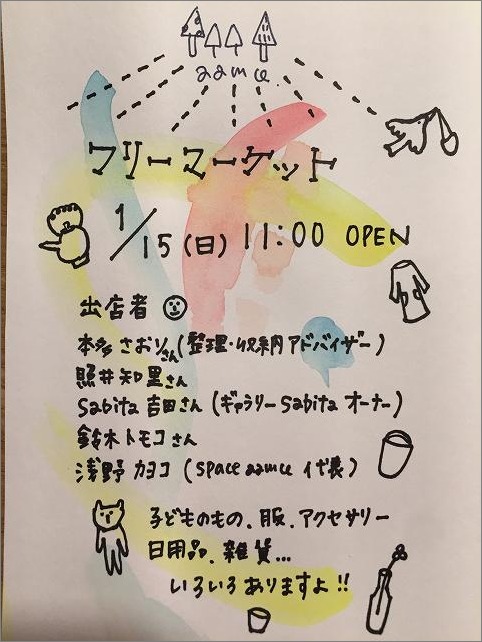 aamce.
フリーマーケット
1/15(日) 11:00 OPEN
出店者
本多さおりさん(整理・収納アドバイザー)
照井知里さん
Sabita吉田さん(ギャラリーSabitaオーナー)
鈴木トモコさん
浅野カヨコ(space aamce 代表)
子どものもの、服、アクセサリー
日用品、雑貨...
いろいろありますよ!!